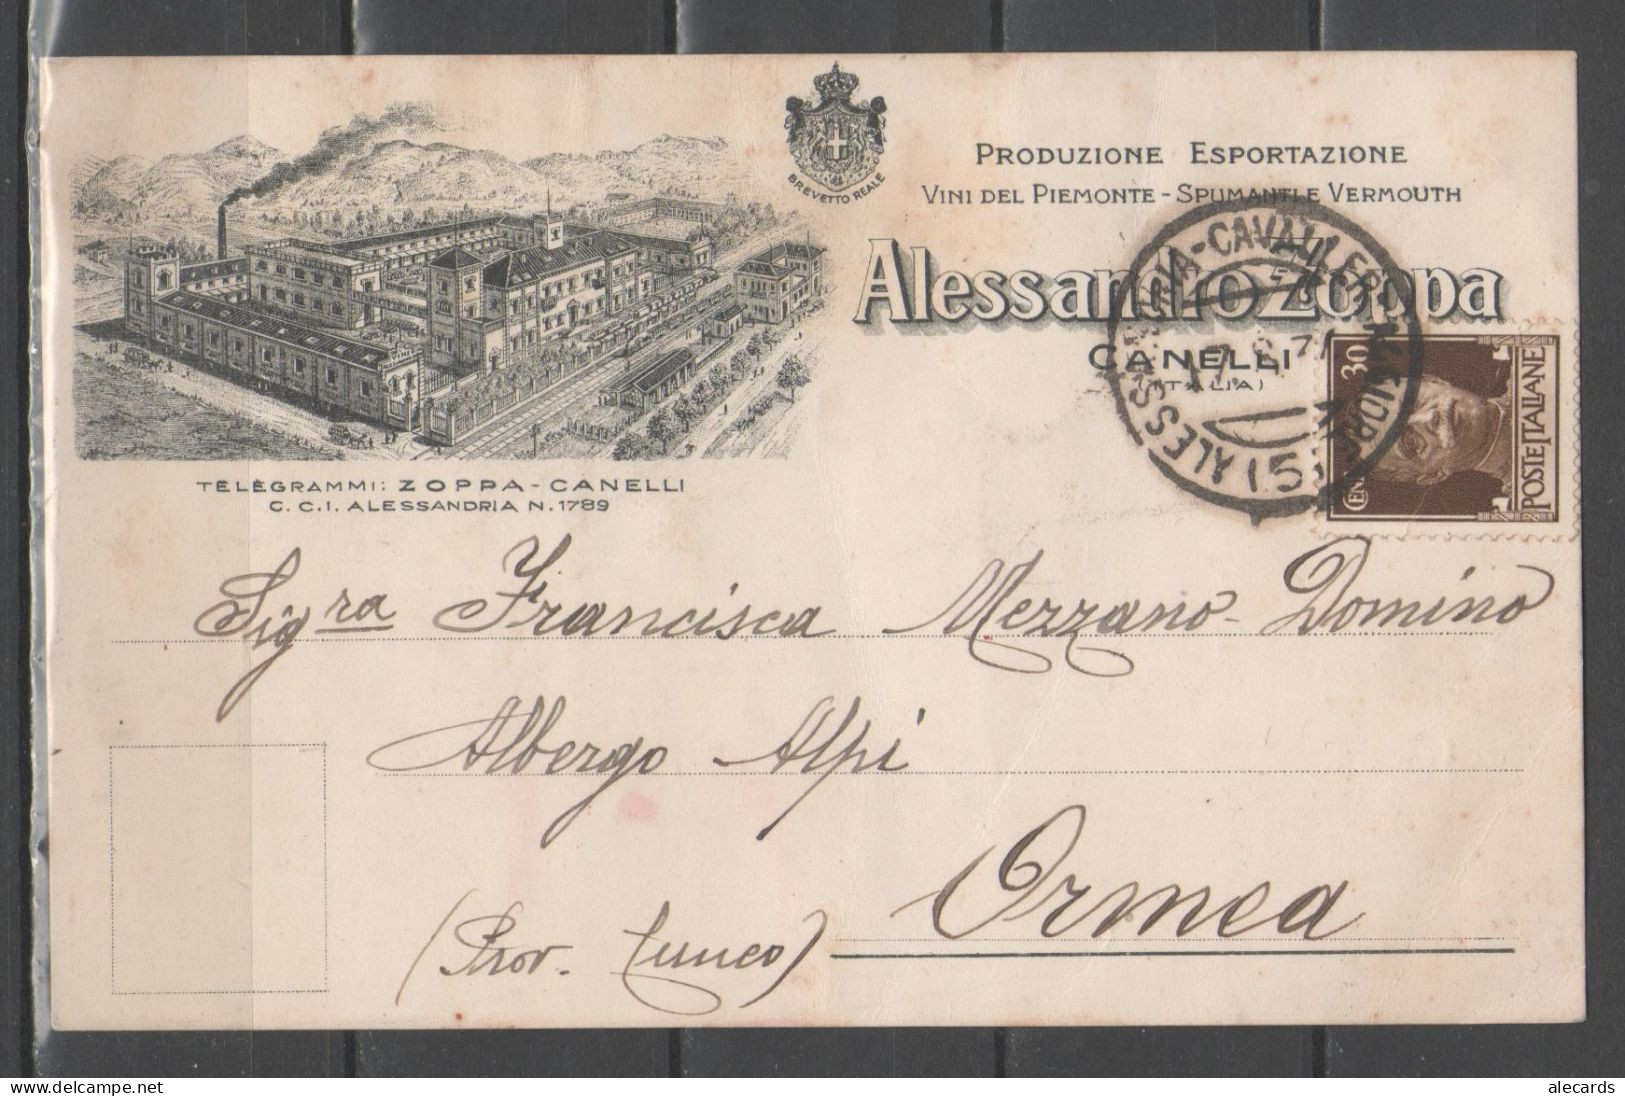 BREVETTO REALE
PRODUZIONE ESPORTAZIONE
VINI DEL PIEMONTE - SPUMANTI E VERMOUTH
Alessandro Zoppa
CANELLI
(ITALIA)
TELEGRAMMI: ZOPPA - CANELLI
C.C.I. ALESSANDRIA N. 1789
CAVALLERMAGGIORE
ALESS
(5)
30
CENT
POSTE ITALIANE
Sigra Francisca Mezzano - Domino
Albergo Alpi
Ormea
(Prov. Cuneo)
alecards